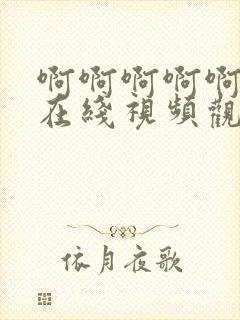 啊啊啊啊啊
在綫視頻觀
依月夜歌